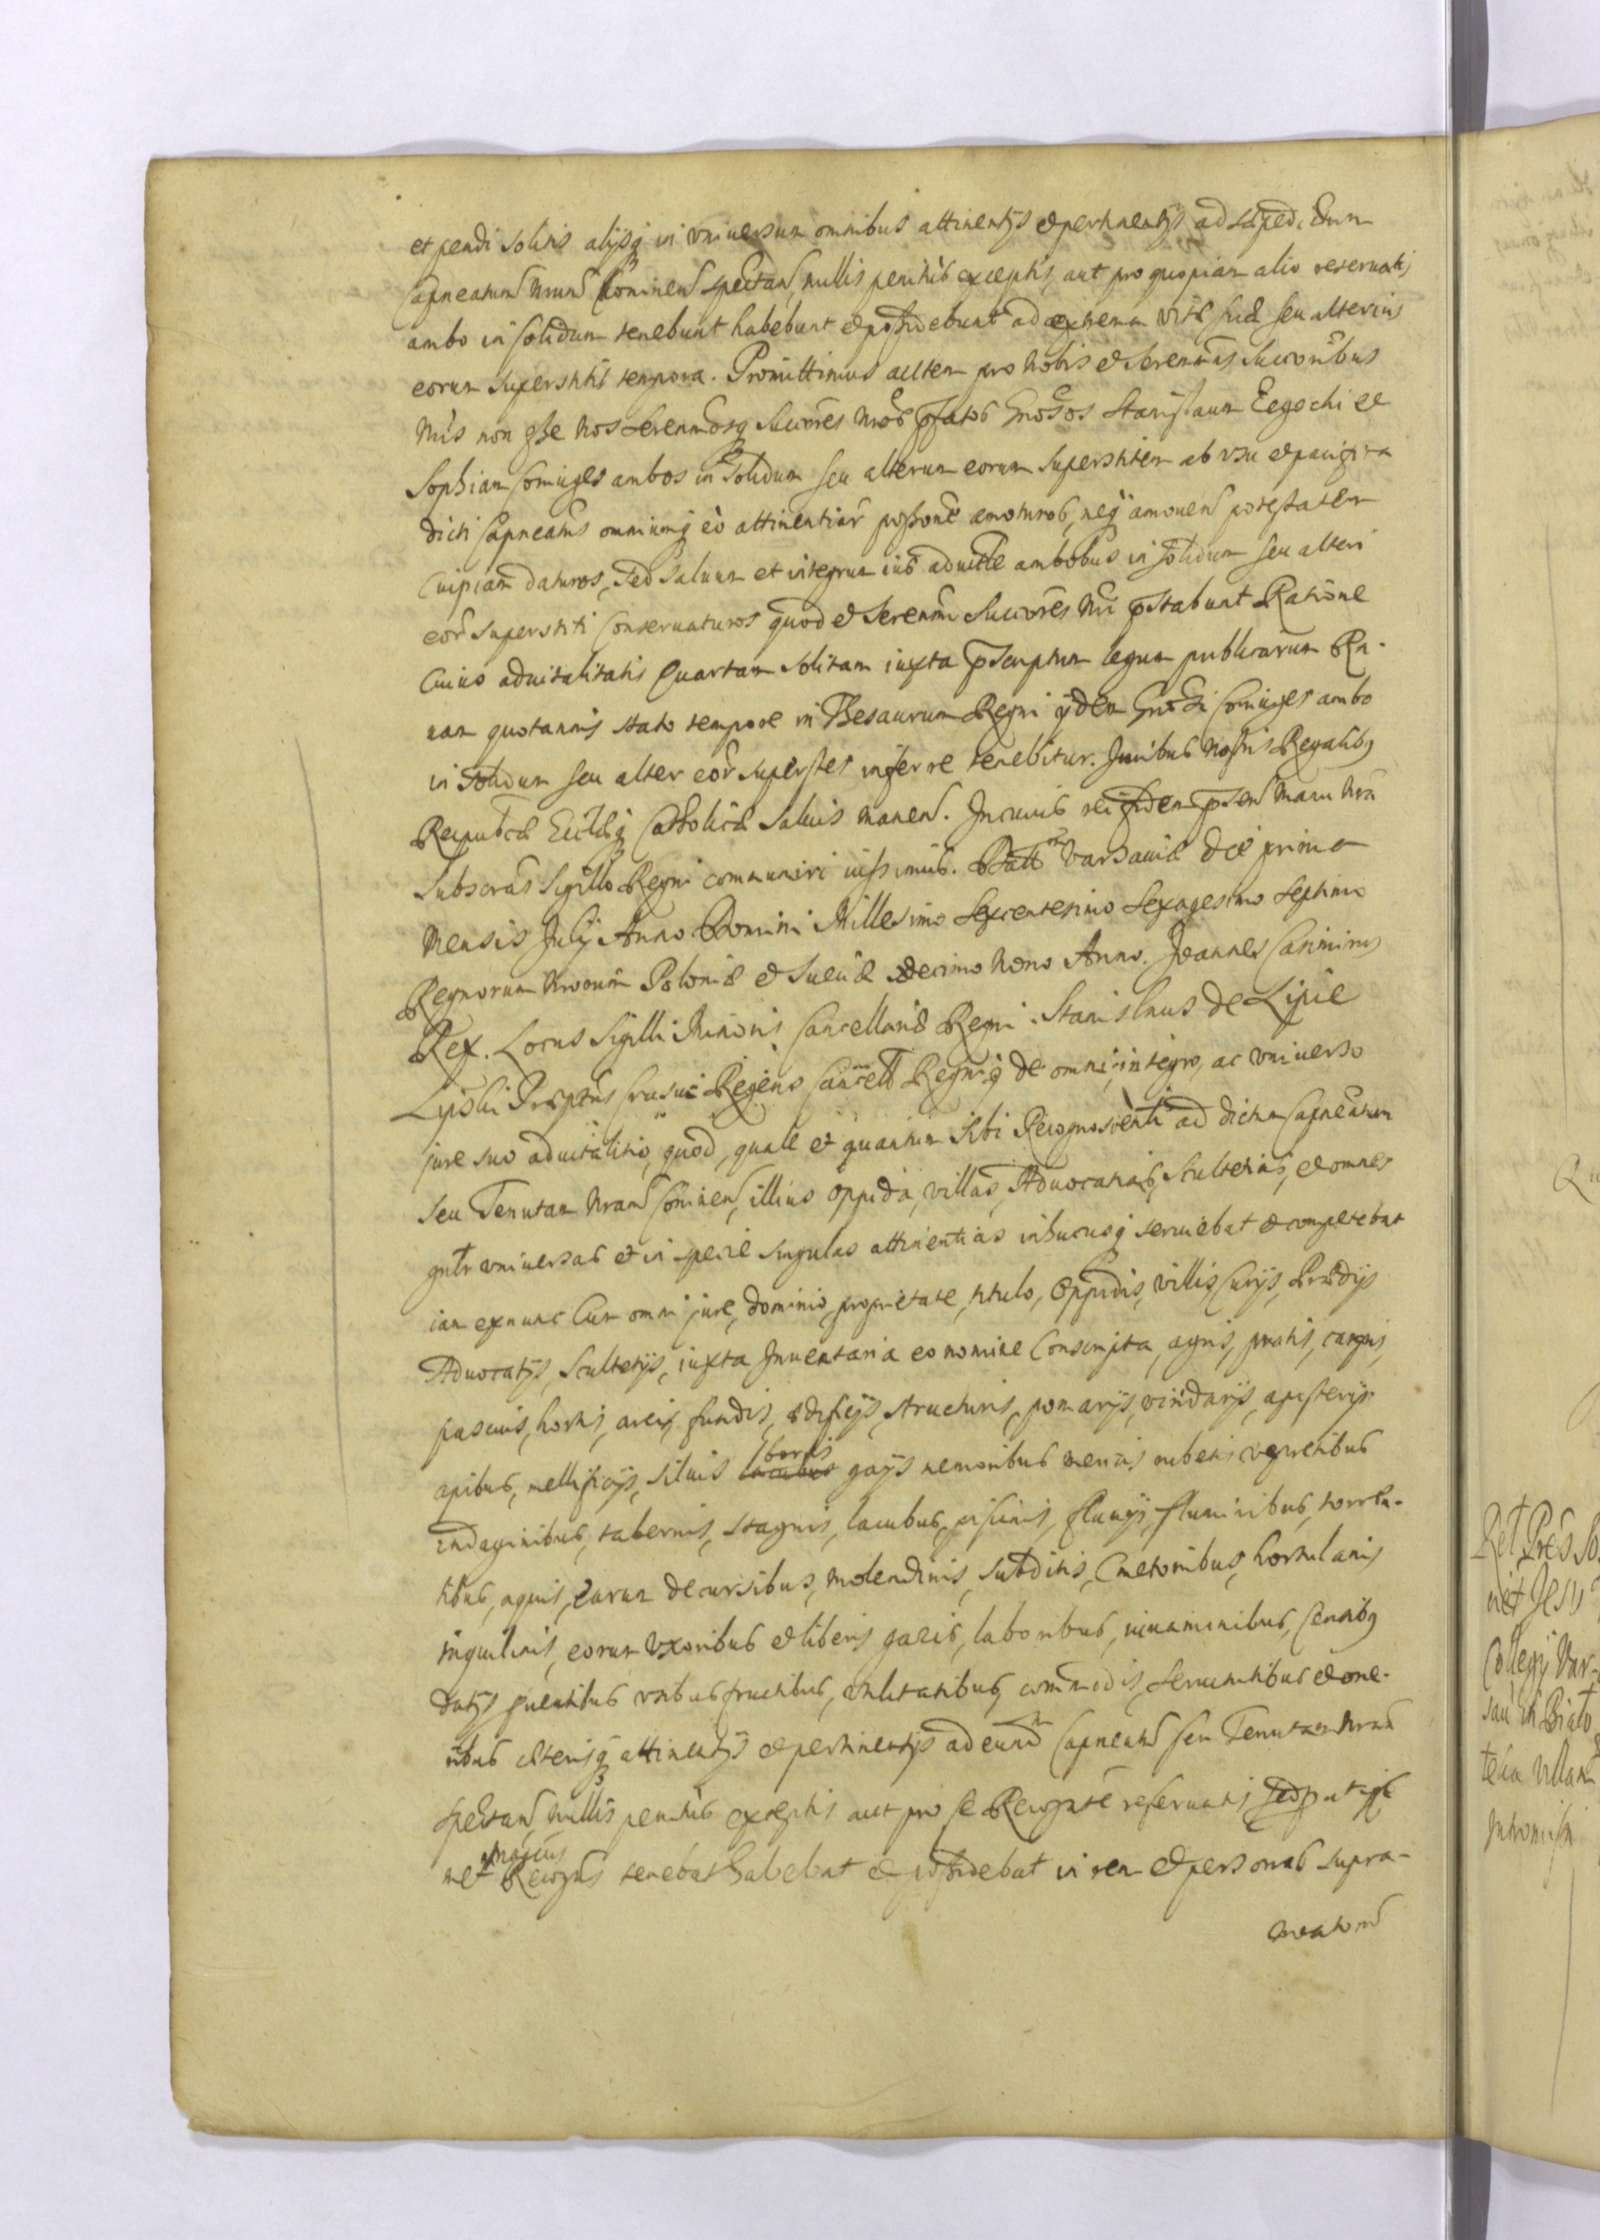 et pendi solitis alijsq in vniuersum omnibus attinentijs et pertinentijs ad saeped. Eum
Capneatum nrum Cominen spectan, nullis penitus exceptis, aut pro quopiam alio reseruatis
ambo in solidum tenebunt habebunt et possidebunt ad extrema vitae suae seu alterius
eorum superstitis tempora. Promittimus autem pro nobis et Serenmis Succoribus
nris non esse nos Serenmosq Succores nros pfatos Gnosos Stanislaum et
Sophiam Coniuges ambos in solidum seu alterum eorum superstitem ab vsu et
dicti Capneatus omniumq eo attinentiar possone amoturos, neq amouen potestatem
Cuipiam daturos, sed saluum et integrum ius aduitale ambobus in solidum seu alteri
eor superstiti Conseruaturos quod et Serenmi Succores nri pstabunt Ratione
Cuius aduitalitatis Quartam solitam iuxta pscriptum legum publicarum
quotannis stato tempore in Thesaurum Regni ijdem Coniuges ambo
in solidum seu alter eor superstes inferre tenebitur. Iuribus nostris Regalibq
Reipubcae Ecclaeq Catholicae saluis manen. In cuius rei fidem psen manu nra
subscras Sigillo Regni communiri iussimus. Datt Varsauiae die prima
Mensis Julij Anno Domini Millesimo Sexcentesimo Sexagesimo Septimo
Regnorum nrorum Poloniae et Sueciae decimo nono Anno. Joannes Casimirus
Rex. Locus Sigilli Minoris Cancellariae Regni. Stanislaus de Lipie
Lipski Regens Cancell Regni q de omni, integro, ac vniuerso
jure suo aduitalitio, quod, quale et quantum sibi Recognoscenti ad dictum Capneatum
seu Tenutam nram Cominen, illius oppida, villas, Aduocatias, Scultetias, et omnes
gnlr vniuersas et in specie singulas attinentias inhucusq seruiebat et competebat
iam exnunc Cum omni jure, dominio, proprietate, titulo, Oppidis, villis Curijs, Praedijs
Aduocatijs, Scultetijs, iuxta Inuentaria eo nomine Conscripta, agris, pratis, campis,
pascuis, hortis, areis fundis, aedificijs, structuris, pomarijs, viridarijs, apisterijs
apibus, mellificijs, siluis boris gaijs nemoribus mericis rubetis virgultibus
Indaginibus, tabernis, stagnis, lacubus, piscinis, fluuijs, fluminibus, torren-
tibus, aquis, earum decursibus, molendinis, subditis, Cmetonibus, hortulanis
inquilinis, eorum vxoribus et liberis gazis, laboribus, iuuaminibus, Censibq
datijs prouentibus vsibus fructibus, vtilitatibus, commodis, seruitutibus et one-
ribus caeterisq attinentijs et pertinentijs ad eund Capneatu seu Tenutam nram
spectan, nullis penitus exceptis aut pro se Recognte reseruatis sed
met Recogns tenebat habebat et possidebat in rem et personas supra-

Ret Pres So
net Jesu
Collegij Var-
sau in
tecia villam
Intromissi